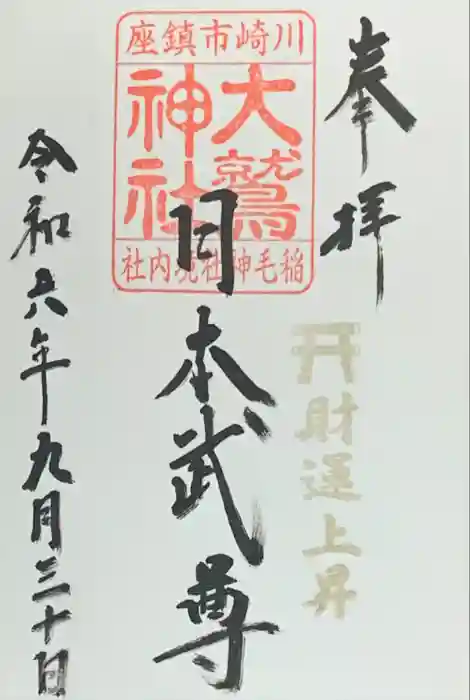 奉拝
川崎市鎮座
大鷲
神社
稲毛神社境内社
財運上昇
日本武尊
令和六年九月三十日